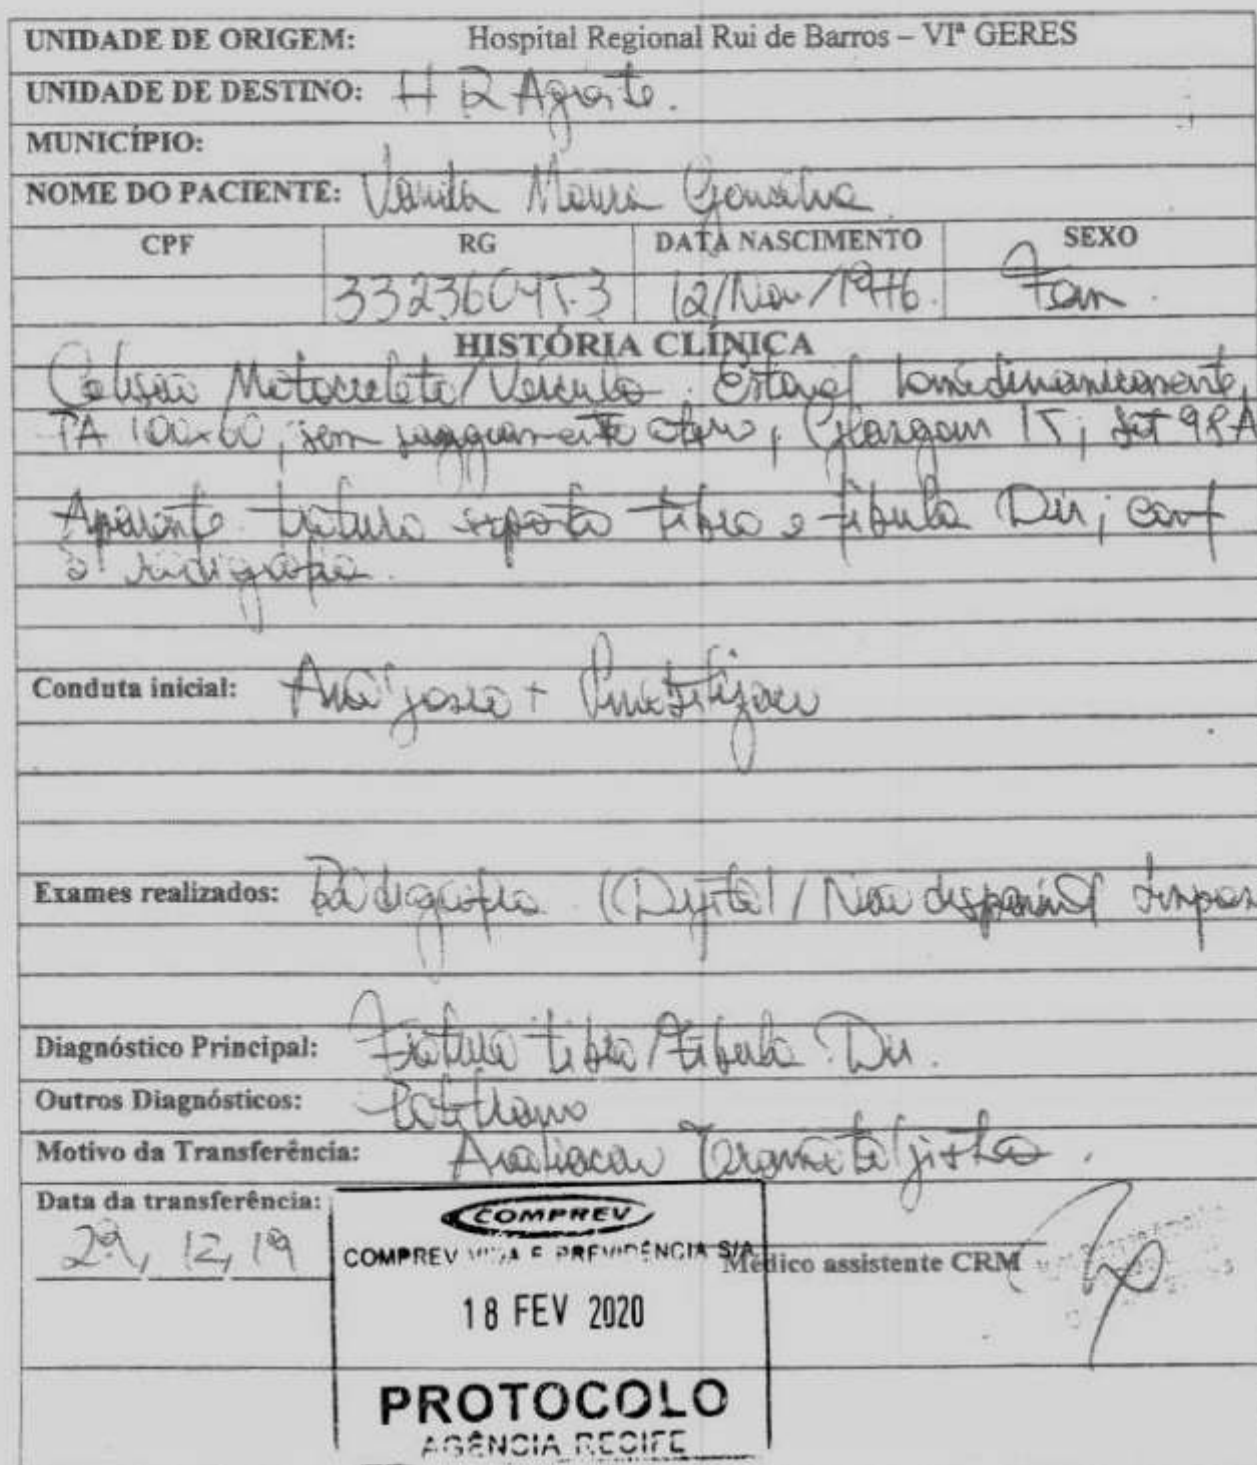 UNIDADE DE ORIGEM: Hospital Regional Rui de Barros – VIª GERES
UNIDADE DE DESTINO: H R Agreste.
MUNICÍPIO:
NOME DO PACIENTE: Moura
CPF RG DATA NASCIMENTO SEXO
12/Nov/1976. Fem.
HISTÓRIA CLÍNICA
Colisão Motocicleta/Veículo. Estável hemodinamicamente,
TA 100x60, sem sangramento ativo, Glasgow 15, Sat 98A
Aparente fratura exposta tíbia e fíbula Dir; conf
radiografia.
Conduta inicial: Analgesia + Imobilização
Exames realizados: Radiografia (Digital / Não disponível
Diagnóstico Principal: Fratura tíbia/fíbula Dir.
Outros Diagnósticos: Politrauma
Motivo da Transferência: Avaliação Traumatologista.
Data da transferência:
29, 12, 19
COMPREV
COMPREV VIDA E PREVIDÊNCIA S/A
Médico assistente CRM
18 FEV 2020
PROTOCOLO
AGÊNCIA RECIFE